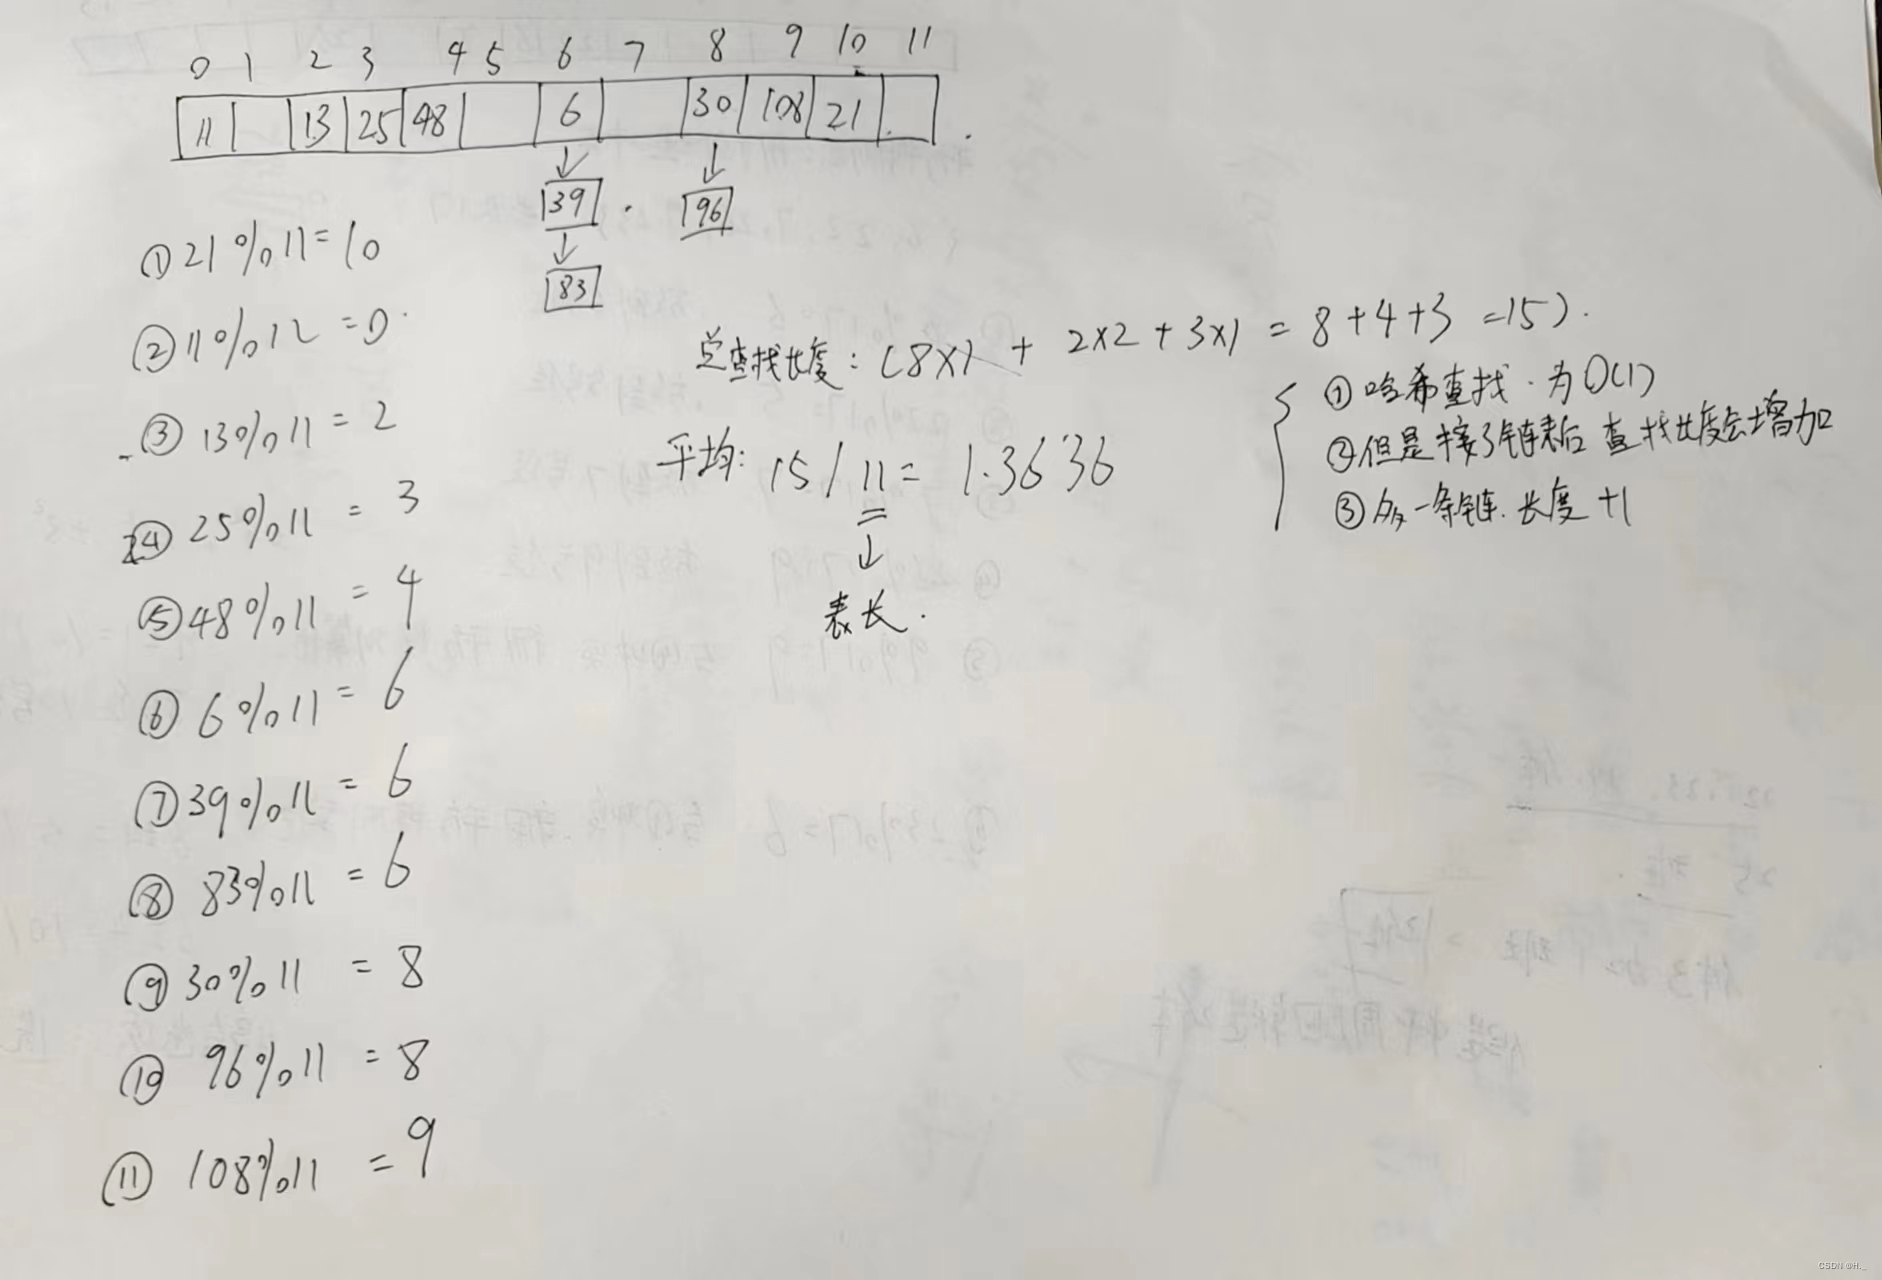 0 1 2 3 4 5 6 7 8 9 10 11
11 13 25 48 6 30 108 21
39 96
83
①21%11=10
②11%12=0
③13%11=2
④25%11=3
⑤48%11=4
⑥6%11=6
⑦39%11=6
⑧83%11=6
⑨30%11=8
⑩96%11=8
⑪108%11=9
总查找长度:(8×1+2×2+3×1=8+4+3=15).
平均:15/11=1.3636
表长.
①哈希查找.为O(1)
②但是接了链表后查找长度会增加
③多一条链.长度+1
CSDN @H._